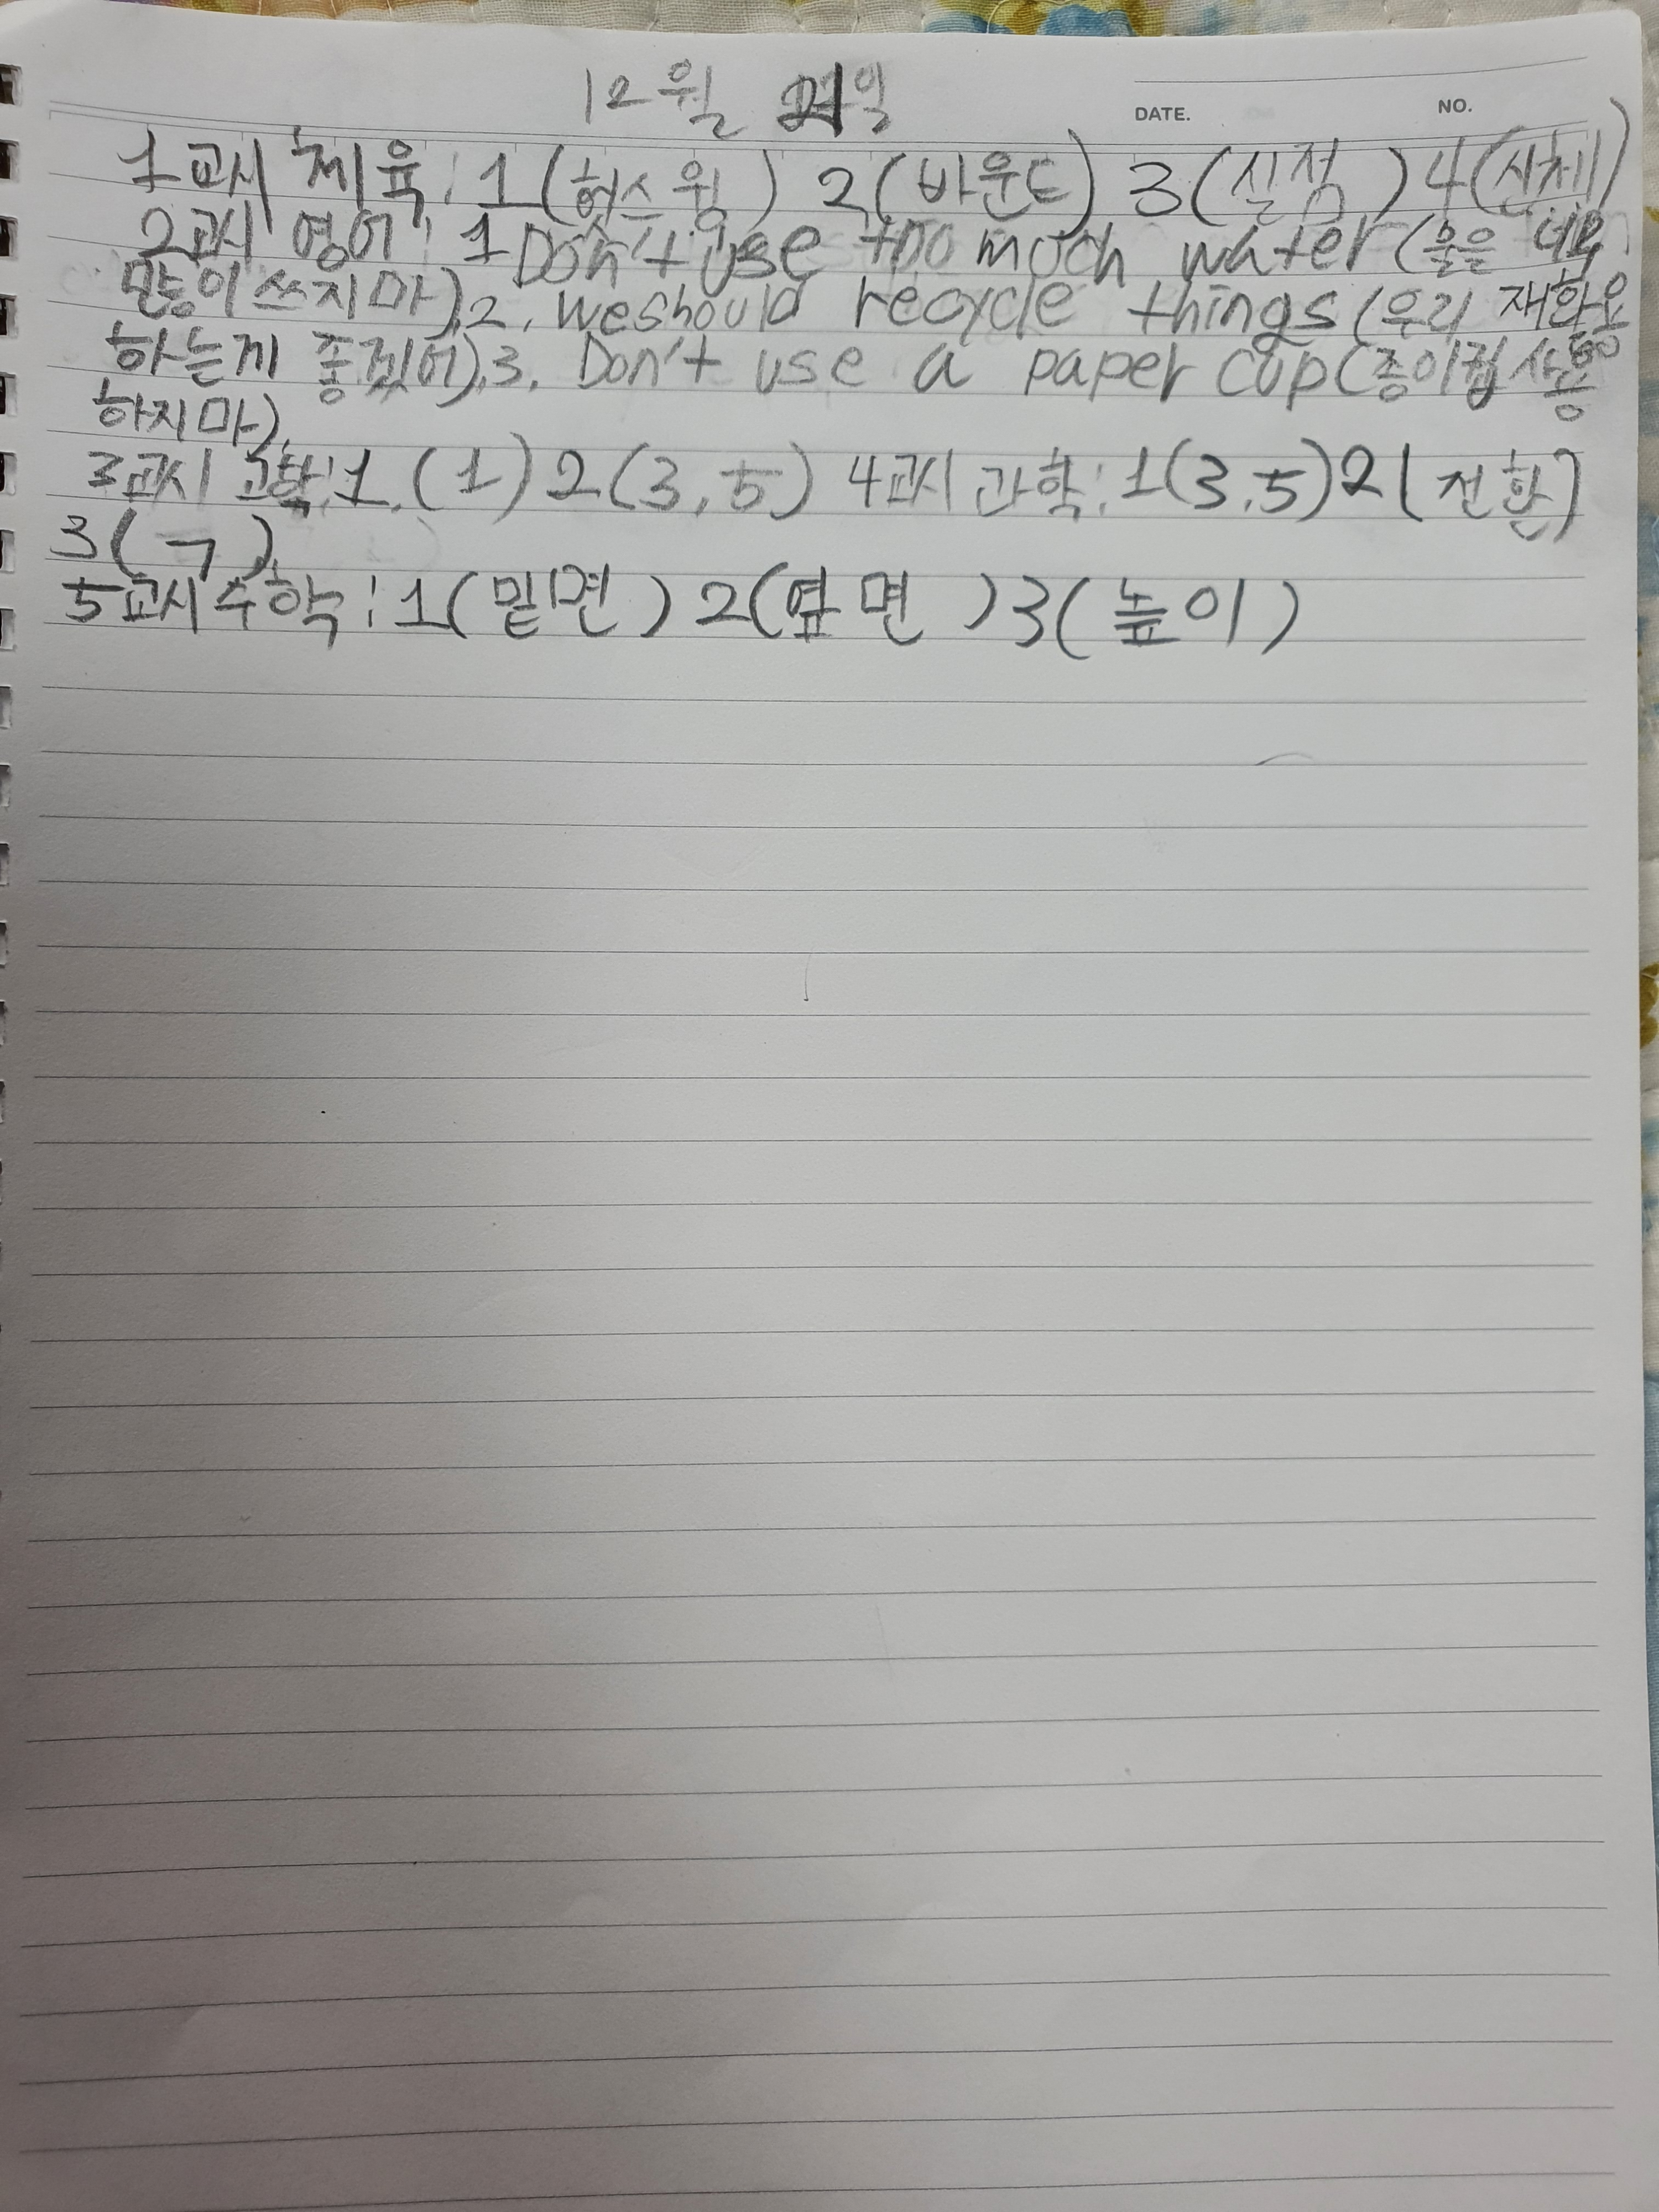 12월 21일
DATE. NO.
1교시 체육: 1(허스윙) 2(바운드) 3(실점) 4(신체)
2교시 영어: 1 Don't use too much water (물을 너무
많이 쓰지마), 2, we should recycle things (우리 재활용
하는게 좋겠어), 3, Don't use a paper cup (종이컵 사용
하지마),
3교시 과학: 1, (1) 2(3, 5) 4교시 과학: 1(3, 5) 2(전환)
3(ㄱ)
5교시 수학: 1(밑면) 2(옆면) 3(높이)